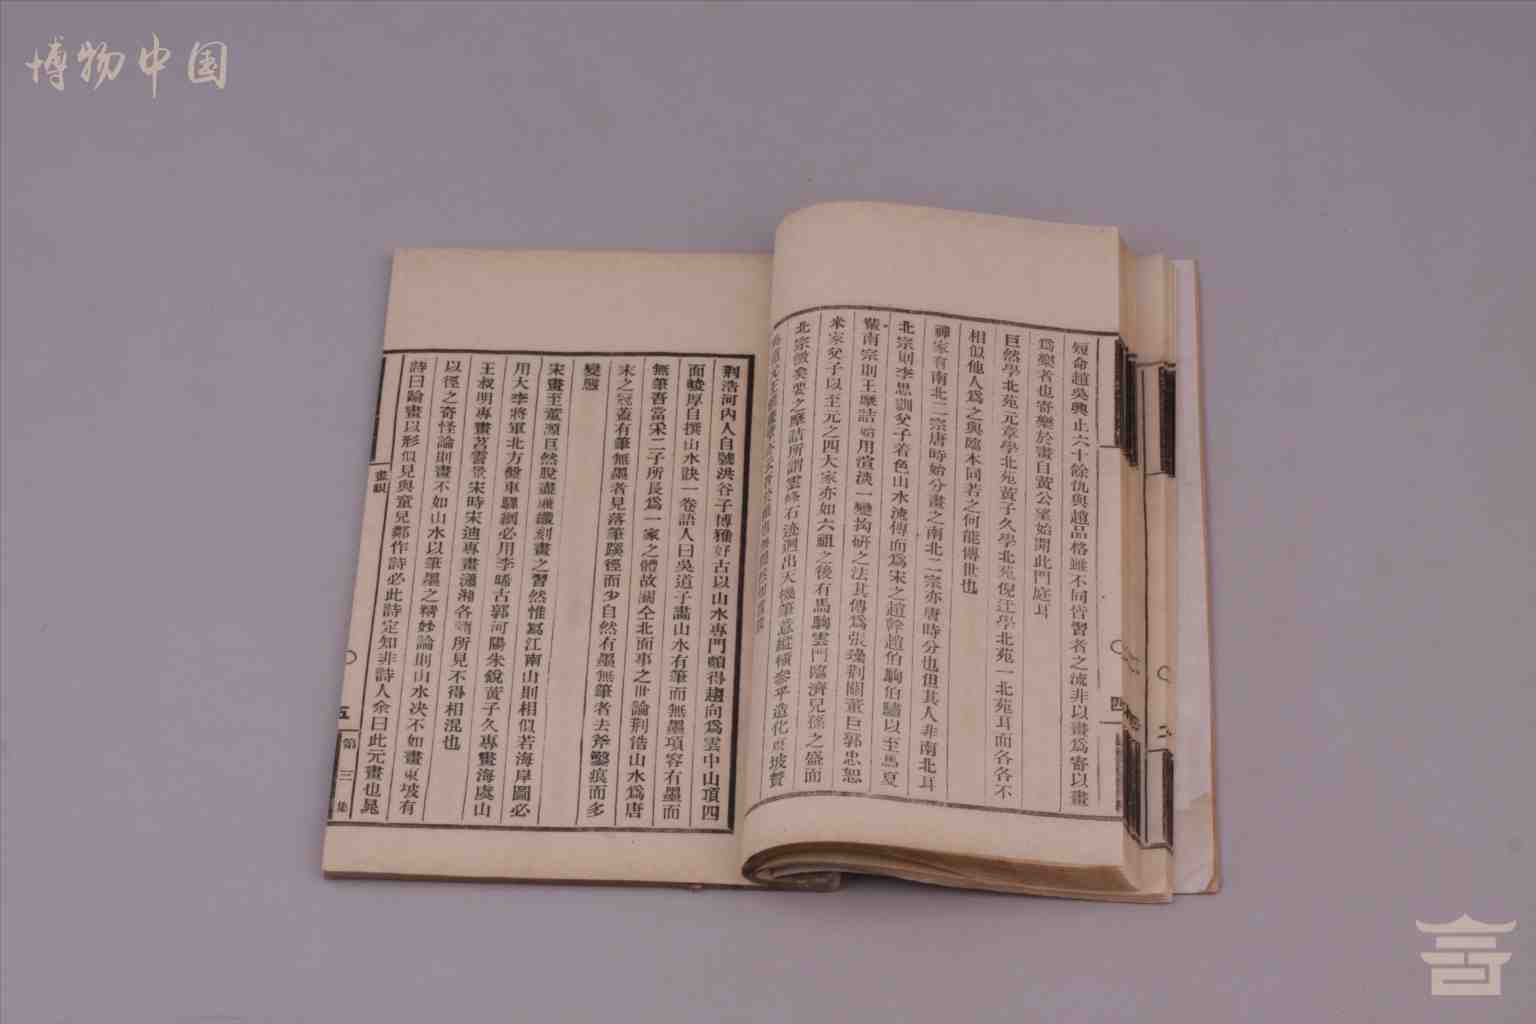 博物中国
短命趙吳興止六十餘仇與趙品格雖不同皆習者之流非以畫爲寄以畫
爲樂者也寄樂於畫自黃公望始開此門庭耳
巨然學北苑元章學北苑黃子久學北苑倪迂學北苑一北苑耳而各各不
相似他人爲之與臨本同若之何能傳世也
禪家有南北二宗唐時始分畫之南北二宗亦唐時分也但其人非南北耳
北宗則李思訓父子着色山水流傳而爲宋之趙幹趙伯駒伯驌以至馬夏
輩南宗則王摩詰始用渲淡一變拘研之法其傳爲張璪荊關董巨郭忠恕
米家父子以至元之四大家亦如六祖之後有馬駒雲門臨濟兒孫之盛而
北宗微矣要之摩詰所謂雲峰石迹迥出天機筆意縱橫參乎造化東坡贊
四
荆浩河內人自號洪谷子博雅好古以山水專門頗得趣向爲雲中山頂四
面峻厚自撰山水訣一卷語人曰吳道子畫山水有筆而無墨項容有墨而
無筆吾當采二子所長爲一家之體故關仝北面事之世論荆浩山水爲唐
宋之冠蓋有筆無墨者見落筆蹊徑而少自然有墨無筆者去斧鑿痕而多
變態
宋畫至董源巨然脫盡廉纖刻畫之習然惟寫江南山則相似若海岸圖必
用大李將軍北方盤車驛綱必用李晞古郭河陽朱銳黃子久專畫海虞山
王叔明專畫苕霅景宋時宋迪專畫瀟湘各隨所見不得相混也
以徑之奇怪論則畫不如山水以筆墨之精妙論則山水决不如畫東坡有
詩曰論畫以形似見與童兒鄰作詩必此詩定知非詩人余曰此元畫也晁
畫眼
五
第三集